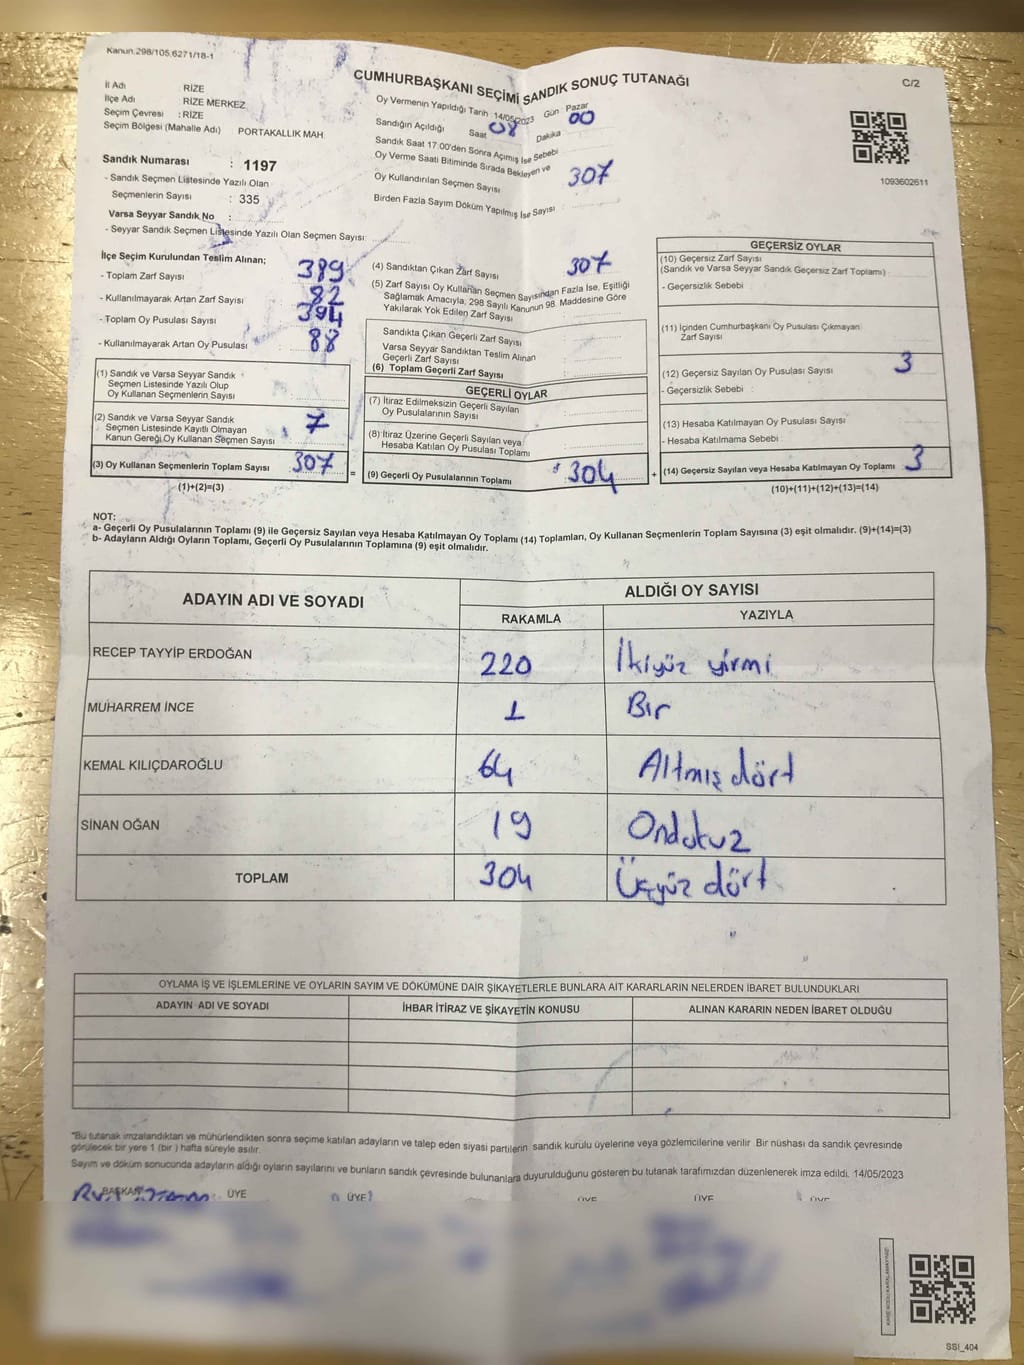 Kanun.298/105.6271/18-1
CUMHURBAŞKANI SEÇİMİ SANDIK SONUÇ TUTANAĞI
C/2
İl Adı RİZE
İlçe Adı RİZE MERKEZ
Seçim Çevresi : RİZE
Seçim Bölgesi (Mahalle Adı) PORTAKALLIK MAH
Oy Vermenin Yapıldığı Tarih 14/05/2023 Gün Pazar
Sandığın Açıldığı Saat 08 Dakika 00
Sandık Saat 17.00'den Sonra Açımış İse Sebebi
Oy Verme Saati Bitiminde Sırada Bekleyen ve
Oy Kullandırılan Seçmen Sayısı 307
Birden Fazla Sayım Döküm Yapılmış İse Sayısı
1093602611
Sandık Numarası : 1197
- Sandık Seçmen Listesinde Yazılı Olan
Seçmenlerin Sayısı : 335
Varsa Seyyar Sandık No :
- Seyyar Sandık Seçmen Listesinde Yazılı Olan Seçmen Sayısı:
İlçe Seçim Kurulundan Teslim Alınan;
- Toplam Zarf Sayısı 389
- Kullanılmayarak Artan Zarf Sayısı 82
- Toplam Oy Pusulası Sayısı 394
- Kullanılmayarak Artan Oy Pusulası 88
(1) Sandık ve Varsa Seyyar Sandık
Seçmen Listesinde Yazılı Olup
Oy Kullanan Seçmenlerin Sayısı
(2) Sandık ve Varsa Seyyar Sandık
Seçmen Listesinde Kayıtlı Olmayan
Kanun Gereği Oy Kullanan Seçmen Sayısı 7
(3) Oy Kullanan Seçmenlerin Toplam Sayısı 307 =
(1)+(2)=(3)
(4) Sandıktan Çıkan Zarf Sayısı 307
(5) Zarf Sayısı Oy Kullanan Seçmen Sayısından Fazla İse, Eşitliği
Sağlamak Amacıyla, 298 Sayılı Kanunun 98. Maddesine Göre
Yakılarak Yok Edilen Zarf Sayısı
Sandıkta Çıkan Geçerli Zarf Sayısı
Varsa Seyyar Sandıktan Teslim Alınan
Geçerli Zarf Sayısı
(6) Toplam Geçerli Zarf Sayısı
GEÇERLİ OYLAR
(7) İtiraz Edilmeksizin Geçerli Sayılan
Oy Pusulalarının Sayısı
(8) İtiraz Üzerine Geçerli Sayılan veya
Hesaba Katılan Oy Pusulası Toplamı
(9) Geçerli Oy Pusulalarının Toplamı 304 +
GEÇERSİZ OYLAR
(10) Geçersiz Zarf Sayısı
(Sandık ve Varsa Seyyar Sandık Geçersiz Zarf Toplamı)
- Geçersizlik Sebebi
(11) İçinden Cumhurbaşkanı Oy Pusulası Çıkmayan
Zarf Sayısı
(12) Geçersiz Sayılan Oy Pusulası Sayısı 3
- Geçersizlik Sebebi
(13) Hesaba Katılmayan Oy Pusulası Sayısı
- Hesaba Katılmama Sebebi
(14) Geçersiz Sayılan veya Hesaba Katılmayan Oy Toplamı 3
(10)+(11)+(12)+(13)=(14)
NOT:
a- Geçerli Oy Pusulalarının Toplamı (9) ile Geçersiz Sayılan veya Hesaba Katılmayan Oy Toplamı (14) Toplamları, Oy Kullanan Seçmenlerin Toplam Sayısına (3) eşit olmalıdır. (9)+(14)=(3)
b- Adayların Aldığı Oyların Toplamı, Geçerli Oy Pusulalarının Toplamına (9) eşit olmalıdır.
ADAYIN ADI VE SOYADI ALDIĞI OY SAYISI
RAKAMLA YAZIYLA
RECEP TAYYİP ERDOĞAN 220 İkiyüz yirmi
MUHARREM İNCE 1 Bir
KEMAL KILIÇDAROĞLU 64 Altmış dört
SİNAN OĞAN 19 Ondokuz
TOPLAM 304 Üçyüz dört
OYLAMA İŞ VE İŞLEMLERİNE VE OYLARIN SAYIM VE DÖKÜMÜNE DAİR ŞİKAYETLERLE BUNLARA AİT KARARLARIN NELERDEN İBARET BULUNDUKLARI
ADAYIN ADI VE SOYADI İHBAR İTİRAZ VE ŞİKAYETİN KONUSU ALINAN KARARIN NEDEN İBARET OLDUĞU
*Bu tutanak imzalandıktan ve mühürlendikten sonra seçime katılan adayların ve talep eden siyasi partilerin sandık kurulu üyelerine veya gözlemcilerine verilir. Bir nüshası da sandık çevresinde
görülecek bir yere 1 (bir) hafta süreyle asılır.
Sayım ve döküm sonucunda adayların aldığı oyların sayılarını ve bunların sandık çevresinde bulunanlara duyurulduğunu gösteren bu tutanak tarafımızdan düzenlenerek imza edildi. 14/05/2023
BAŞKAN ÜYE ÜYE ÜYE ÜYE ÜYE
SSI_404